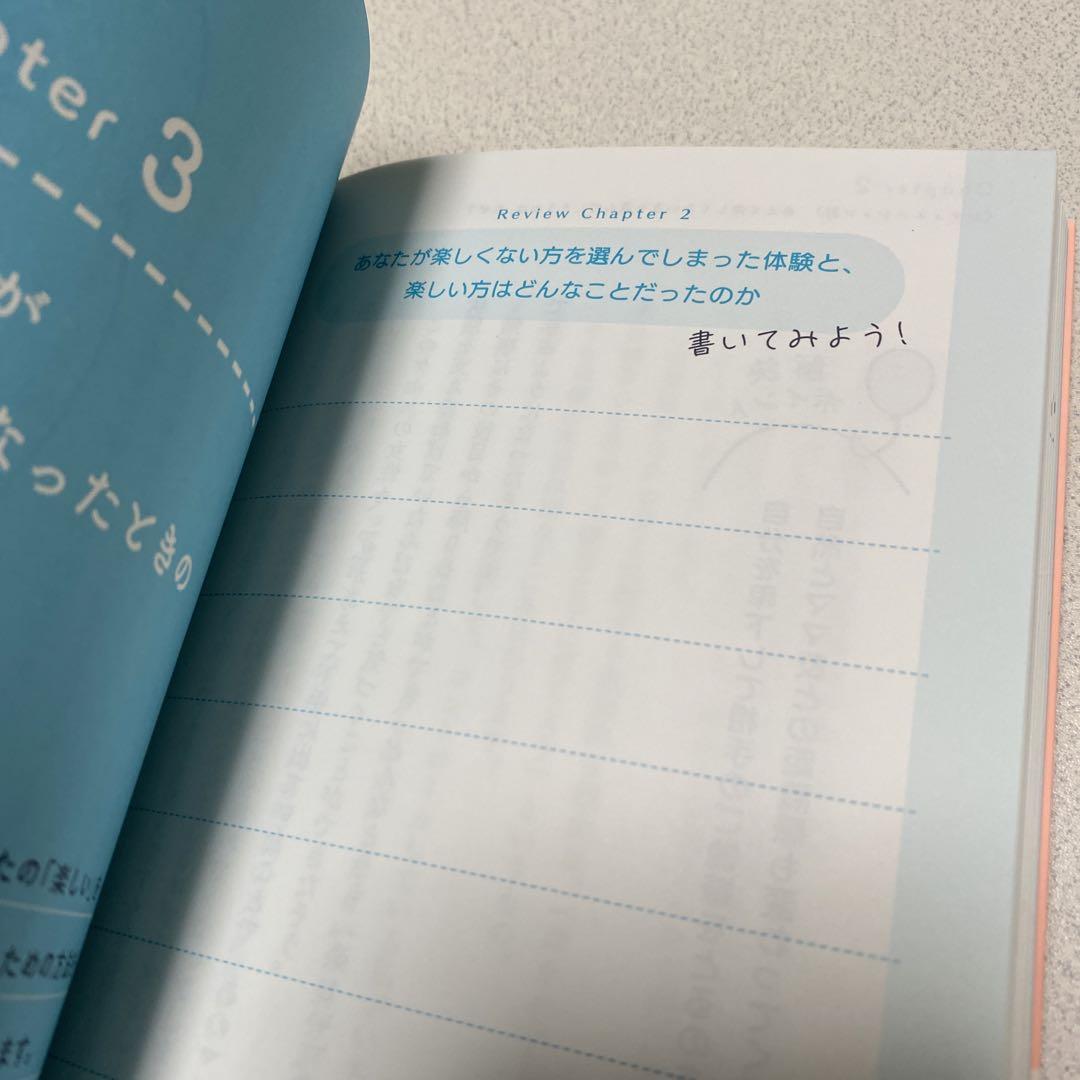 pter 3
が
なったときの
たの「楽しい」を
ための方法
ます。
Review Chapter 2
あなたが楽しくない方を選んでしまった体験と、
楽しい方はどんなことだったのか
書いてみよう！